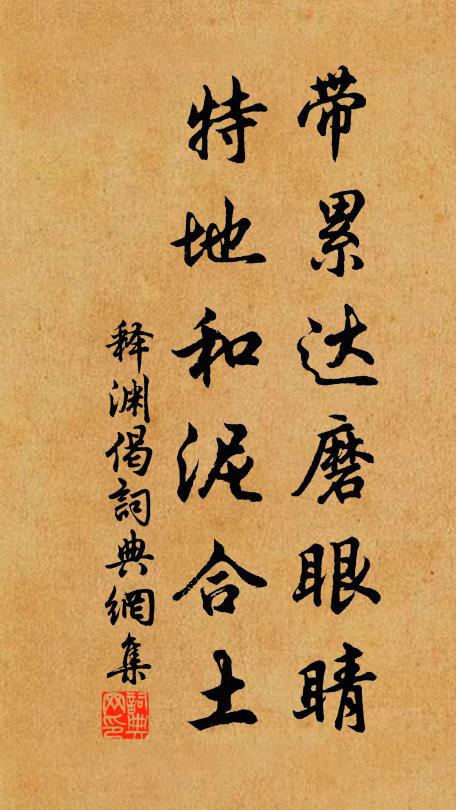 带累达磨眼睛
特地和泥合土
释渊偈詞典網集
詞典网印